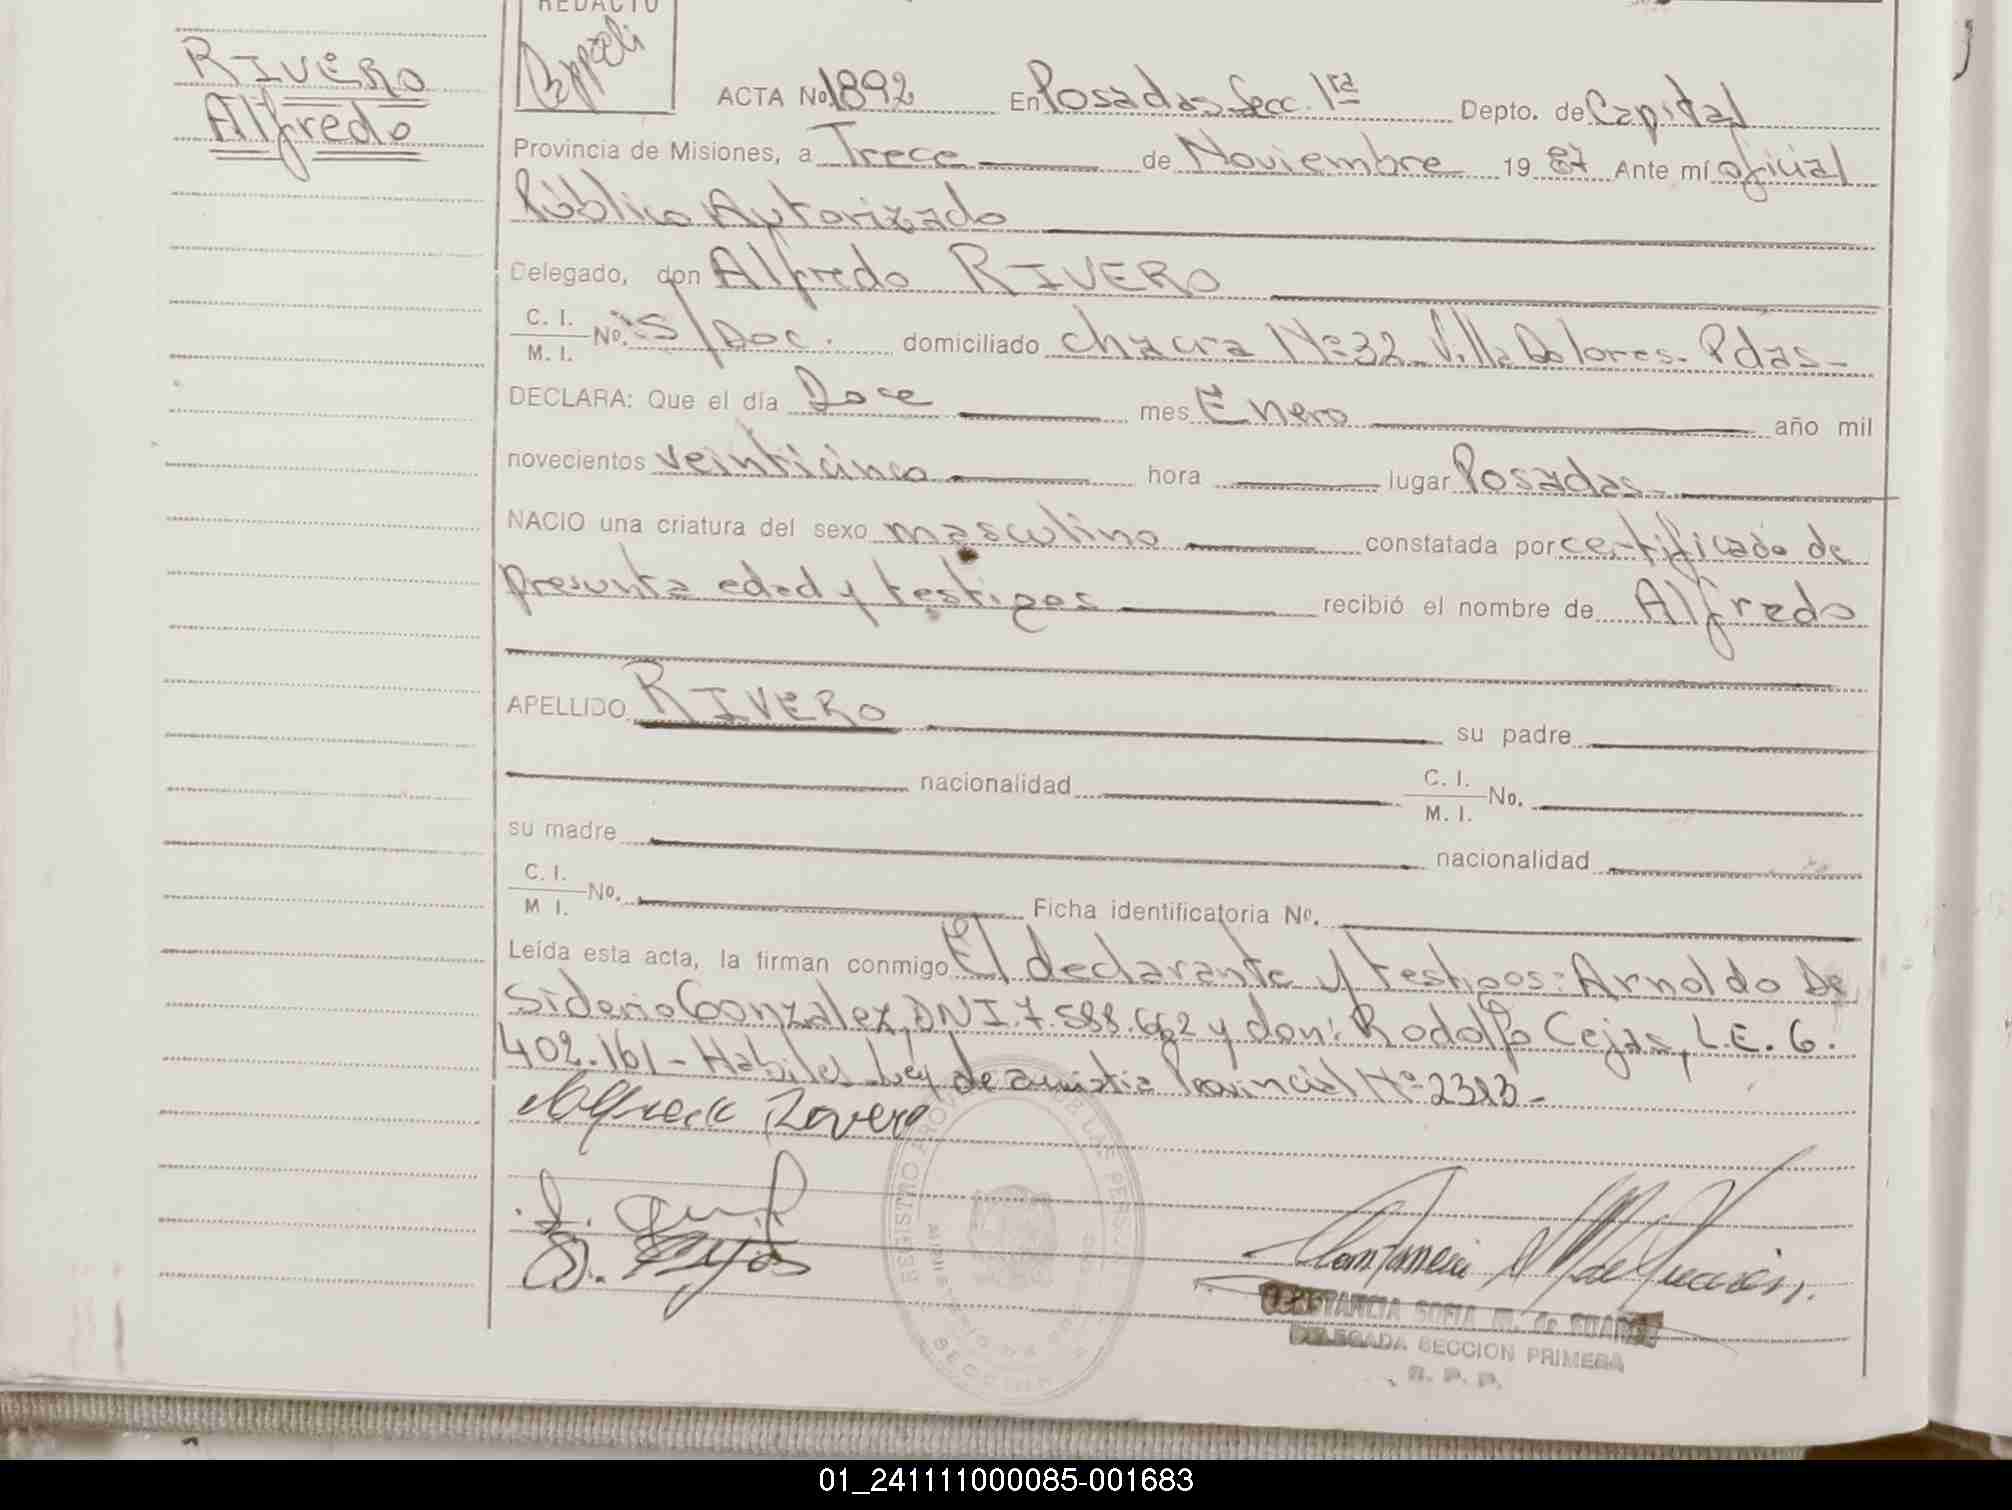 REDACTO
RIVERO
Alfredo
ACTA No 1892 En Posadas Secc. 1ra Depto. de Capital
Provincia de Misiones, a Trece de Noviembre 1987 Ante mí oficial
Público Autorizado
Delegado, don Alfredo RIVERO
C. I.
M. I. No. S/Doc. domiciliado chacra Nº 32 Villa Dolores - Pdas-
DECLARA: Que el día Doce mes Enero año mil
novecientos veinticinco hora lugar Posadas-
NACIO una criatura del sexo masculino constatada por certificado de
presunta edad y testigos recibió el nombre de Alfredo
APELLIDO RIVERO su padre
nacionalidad C. I.
M. I. No.
su madre nacionalidad
C. I.
M I. No. Ficha identificatoria Nº.
Leída esta acta, la firman conmigo El declarante y testigos: Arnoldo De
siderio Gonzalez, DNI. 7.588.662 y don: Rodolfo Cejas, L.E. 6.
402.161 - Habiles Ley de amnistia Provincial Nº 2313-
REGISTRO PROV DE LAS PERS
SECCION
CONSTANCIA SOFIA M. de
DELEGADA SECCION PRIMERA
R. P. P.
01_241111000085-001683